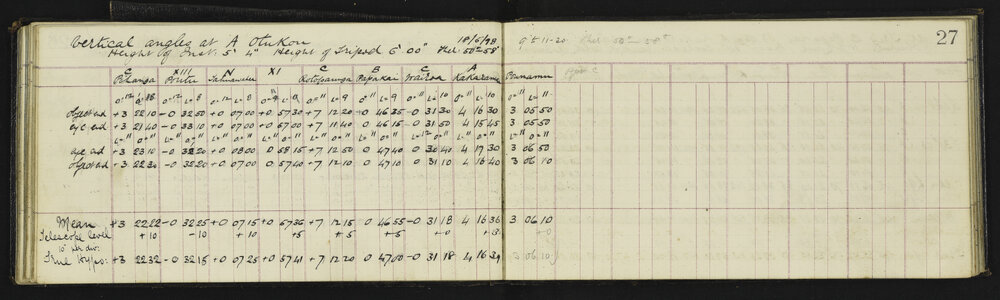 27
Vertical angles at A Otukou 18/5/98 9 to 11-20 Ther 50°-58°
Height of Inst. 5' 4" Height of Tripod 6' 00" Ther 50°-58°
C XIII N XI C B C A
Pihanga Poutu Kotopaunga Papakai Wairoa Kakaramea
o=12 L=8 o=12 L=8 o=12 L=8 o=9" L=8 o=" L=9 o=" L=9 o=" L=10 o=" L=10 o=" L="
Object end +3 22 10 -0 32 50 +0 07 00 +0 57 30 +7 12 20 -0 46 35 -0 31 30 4 16 30 3 05 50
eye end +3 21 40 -0 33 10 +0 07 00 +0 57 00 +7 11 40 0 46 15 0 31 50 4 15 45 3 05 50
L=" o=" L=" o=" L=" o=" L=" o=" L=" o=" L=" o=" L=12 o=" L=" o=" L=" o="
eye end +3 23 10 -0 32 20 +0 08 00 0 58 15 +7 12 50 0 47 40 0 30 40 4 17 30 3 06 50
Object end +3 22 30 -0 32 20 +0 07 00 0 57 40 +7 12 10 0 47 10 0 31 10 4 16 40 3 06 10
Mean +3 22 22 -0 32 25 +0 07 15 +0 57 36 +7 12 15 0 46 55 -0 31 18 4 16 36 3 06 10
Telescope level +10 -10 +10 +5 +5 +5 +0 +3 +0
10" per div:
True Hypo: +3 22 32 -0 32 15 +0 07 25 +0 57 41 +7 12 20 0 47 00 -0 31 18 4 16 39 3 06 10